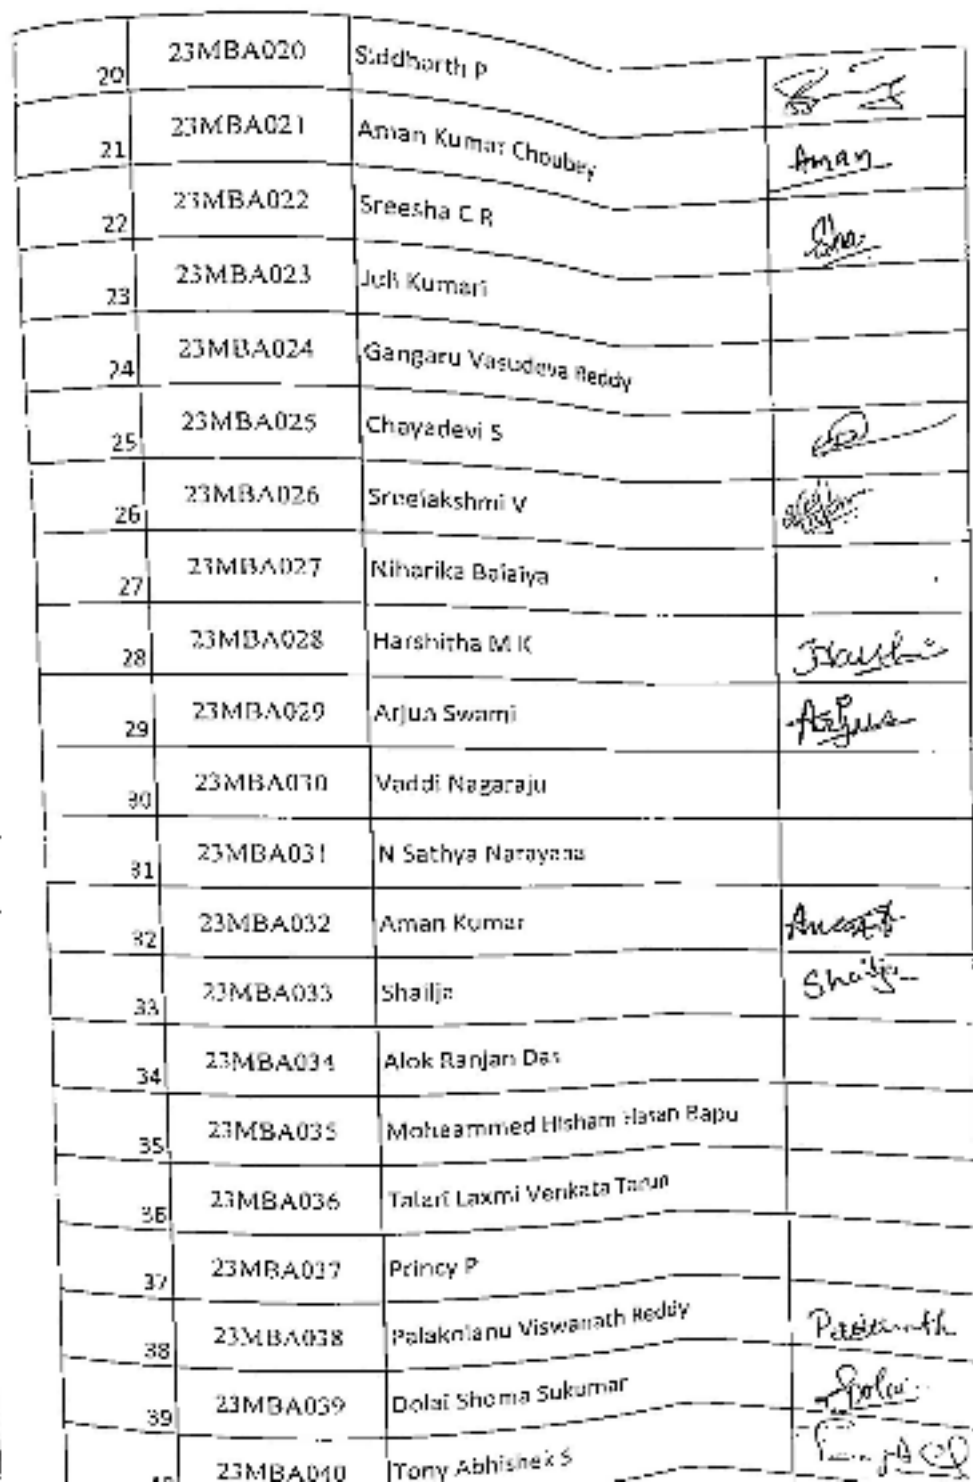 20 23MBA020 Siddharth P
21 23MBA021 Aman Kumar Choubey Aman
22 23MBA022 Sreesha C R
23 23MBA023 Juli Kumari
24 23MBA024 Gangaru Vasudeva Reddy
25 23MBA025 Chayadevi S
26 23MBA026 Sreelakshmi V
27 23MBA027 Niharika Balaiya
28 23MBA028 Harshitha M K
29 23MBA029 Arjun Swami Arjun
30 23MBA030 Vaddi Nagaraju
31 23MBA031 N Sathya Narayana
32 23MBA032 Aman Kumar
33 23MBA033 Shailja Shailja
34 23MBA034 Alok Ranjan Das
35 23MBA035 Moheammed Hisham Hasan Bapu
36 23MBA036 Talari Laxmi Venkata Tarun
37 23MBA037 Princy P
38 23MBA038 Palakolanu Viswanath Reddy
39 23MBA039 Dolai Shoma Sukumar
23MBA040 Tony Abhishek S